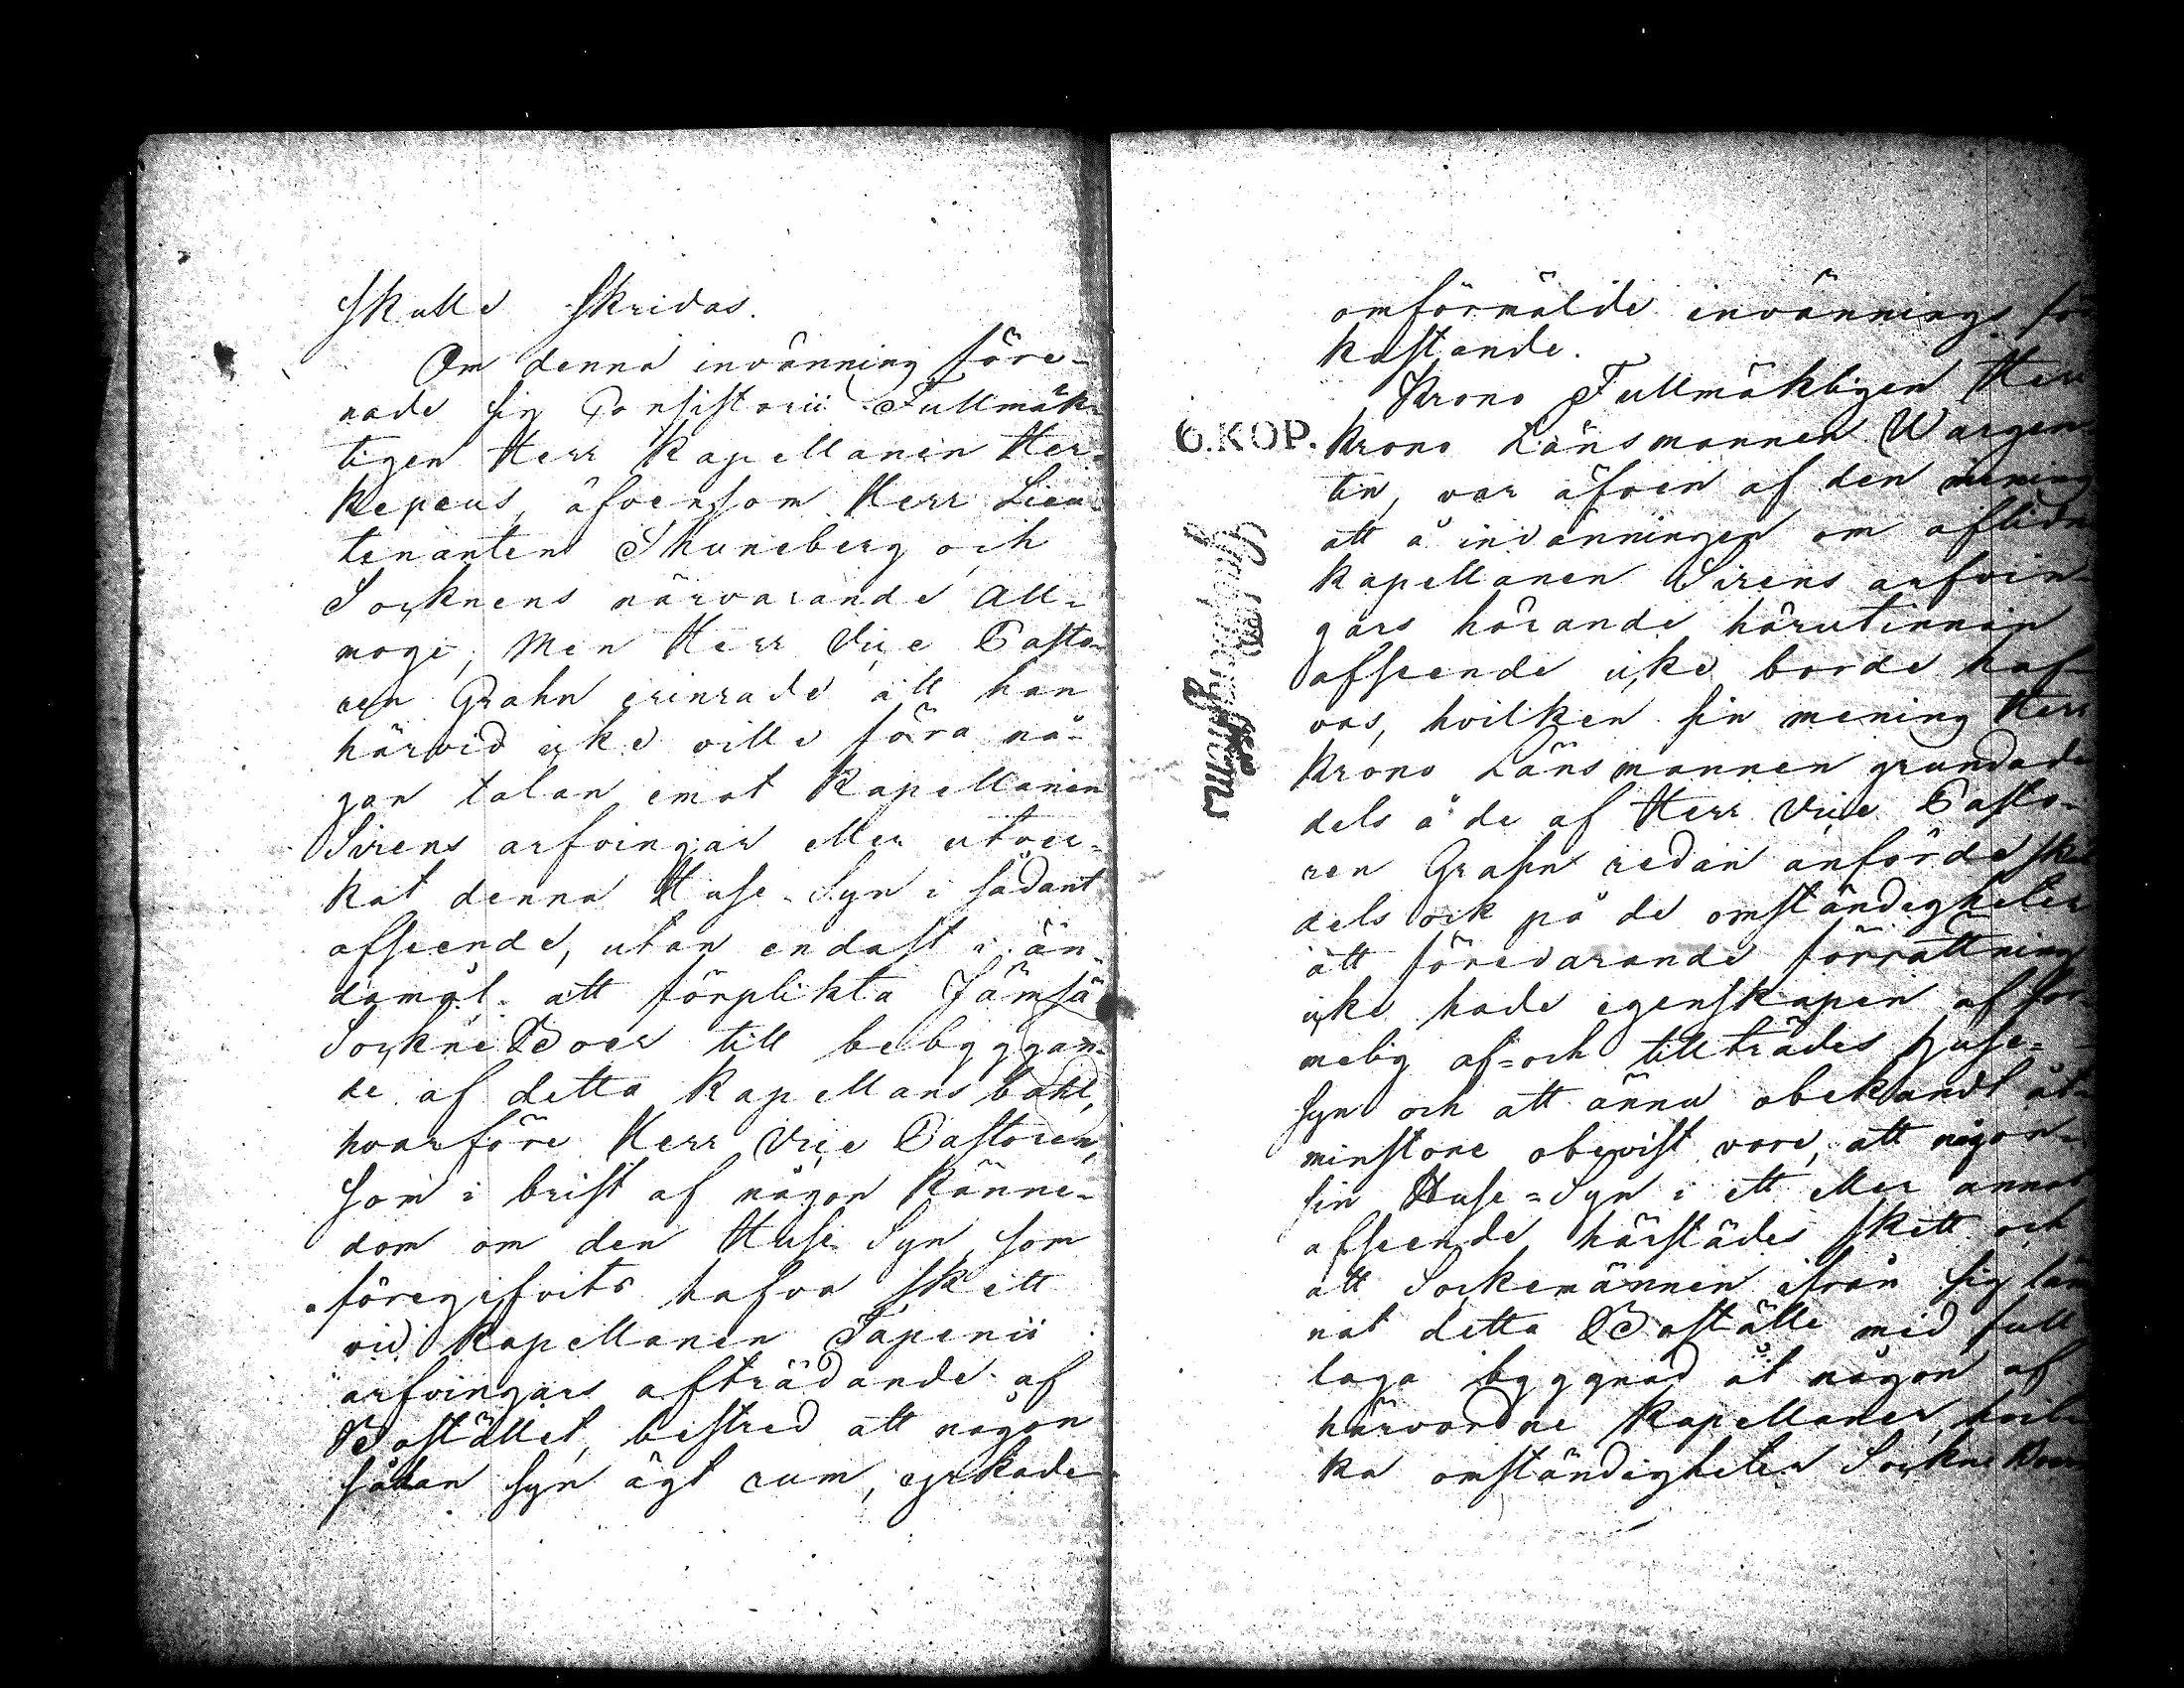 skulle skridas.
Om denna invänning före-
nade sig Consistorii Fullmäk-
tigen Herr Kapellanen Her-
kepeus, äfvensom Herr Lieu-
tenanten Thuneberg och
Socknens närvarande All-
moge; Men Herr Vice Pasto-
ren Grahn erinrade att han
härvid icke ville föra nå-
gon talan emot Kapellanen
Sirens arfvingar eller utver-
kat denna Huse-Syn i sådant
afseende, utan endast i än-
damål att förplikta Jämsä
SockneBoer till bebyggan-
de af detta Kapellans bohl,
hvarföre Herr Vice Pastoren,
som i brist af någon känne-
dom om den Huse Syn, som
föregifvits hafva skett
vid Kapellanen Tapenii
arfvingars afträdande af
Bostället, bestred att någon
sådan syn ägt rum, yrkade
omförmälde invännings för
kastande.
Krono Fullmäktigen Herr
6.KOP. Krono Länsmannen Wargen-
tin, var äfven af den mening
att å invänningen om aflidne
Kapellanen Sirens arfvin-
gars hörande härutinnan
afseende icke borde haf-
vas, hvilken sin mening Herr
Krono Länsmannen grundade
dels å de af Herr Vice Pasto-
ren Grahn redan anförde skäl
dels ock på de omständigheter
att förevarande förrättning
icke hade egenskapen af for-
melig af= och tillträdes huse=
syn och att ännu obekandt åt-
minstone obevist vore, att någon-
sin Huse=Syn i ett eller annat
afseende härstädes skett och
att Sockenämnen ifrån sig läm
nat detta Boställe med full
laga byggnad åt någon af
härvordne Kapellaner, hvil-
ka omständigheter Sockne Boer